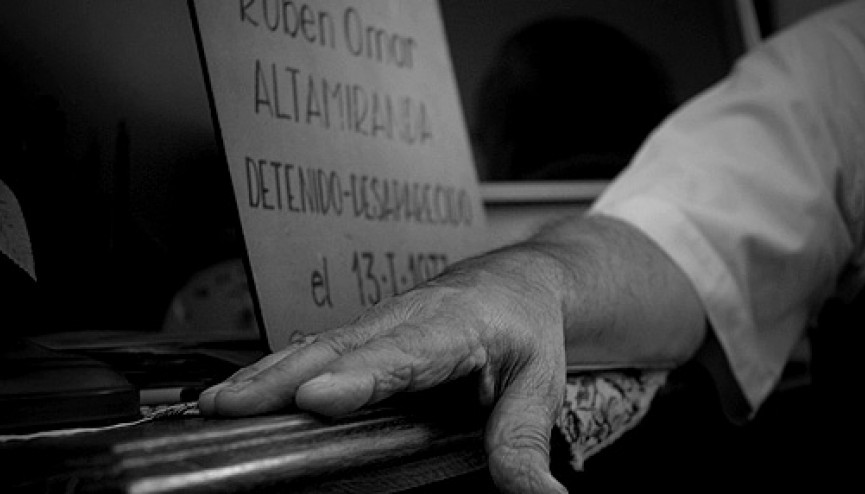 Ruben Omar
ALTAMIRANDA
DETENIDO-DESAPARECIDO
el 13·I·1977